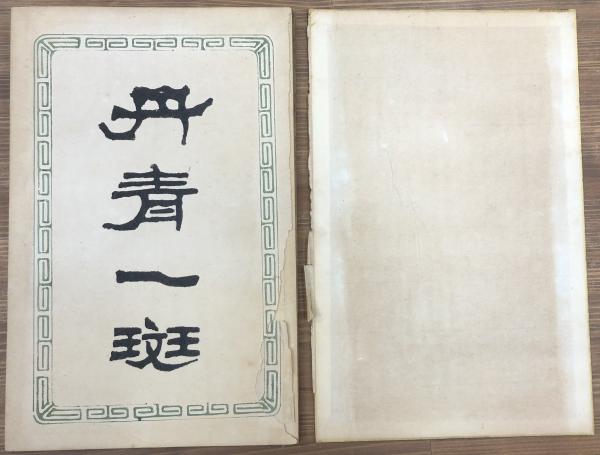 丹青一斑